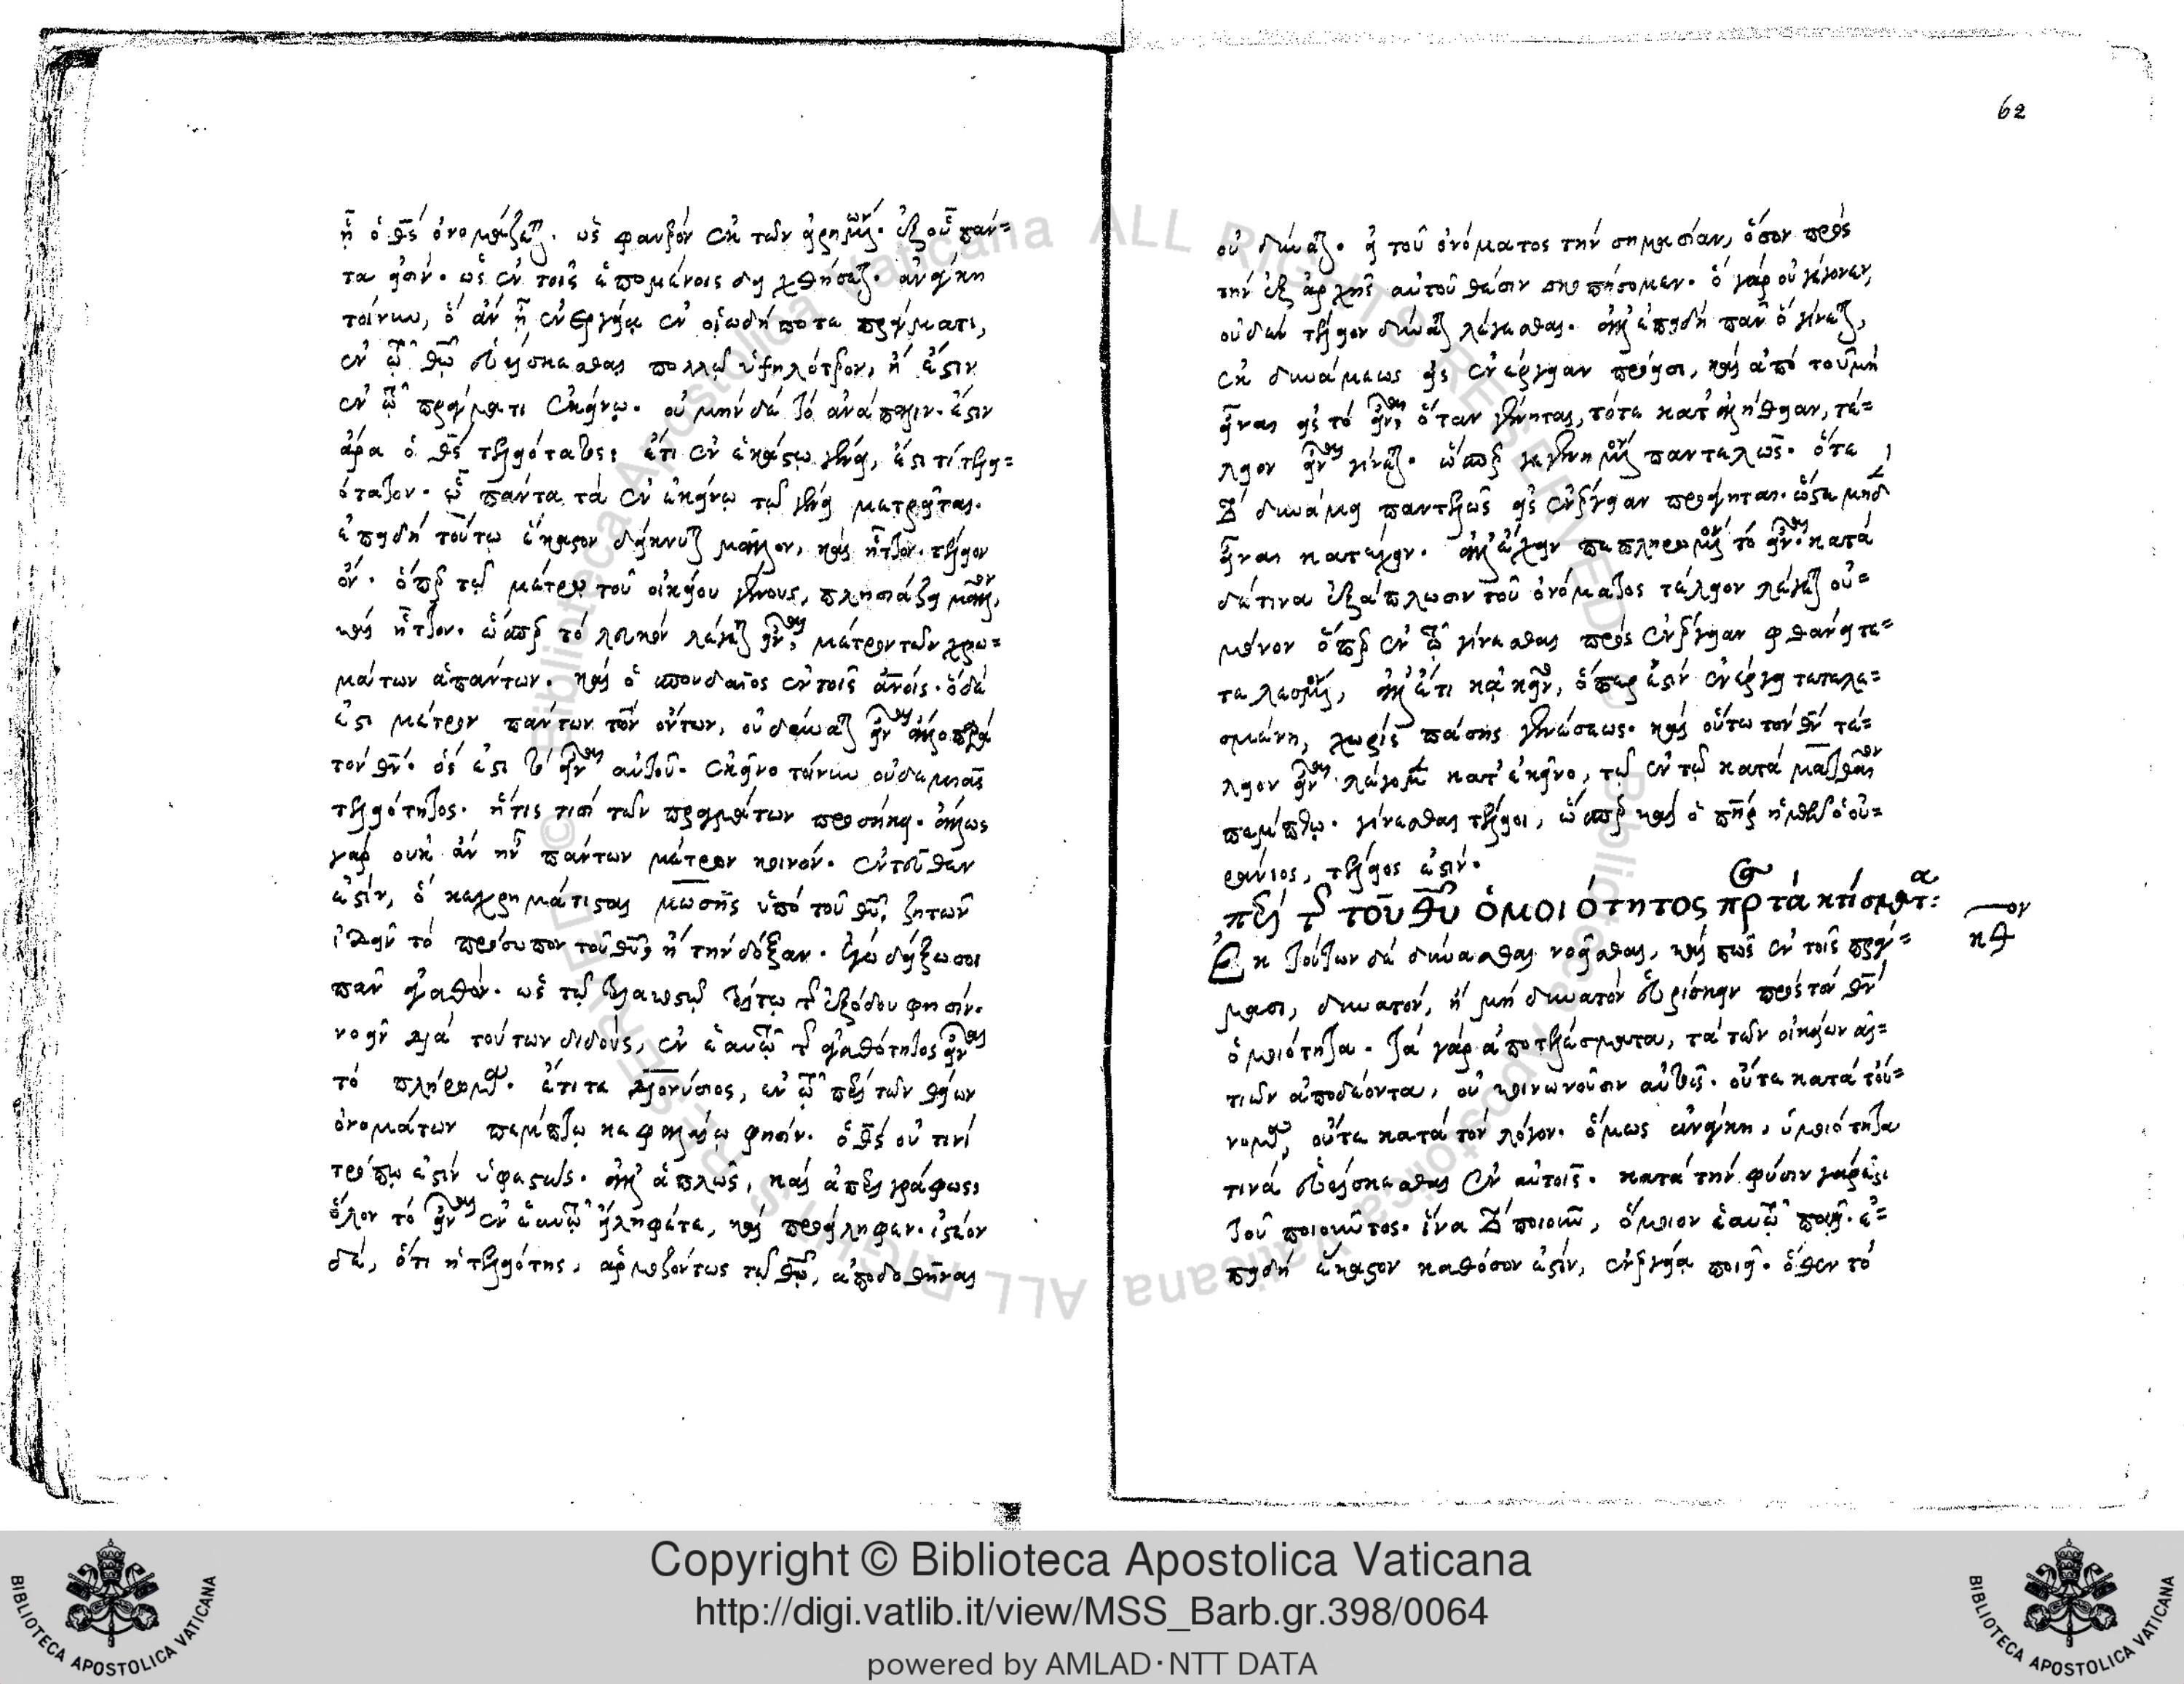 62
ᾗ ὁ θς ὀνομάζεται. ὡς φανερὸν ἐκ τῶν εἰρημένων. ἐξ οὗ πάν=
τα εἰσίν. ὡς ἐν τοῖς ἑπομένοις δειχθήσεται. ἀνάγκη
τοίνυν, ὃ ἂν ᾖ ἐνεργείᾳ ἐν οἱῳδήποτε πράγματι,
ἐν τῷ θῷ εὑρίσκεσθαι πολλῷ ὑψηλότερον, ἢ ἔστιν
ἐν τῷ πράγματι ἐκείνῳ. οὐ μὴν δὲ τὸ ἀνάπαλιν. ἔστιν
ἄρα ὁ θς τελειότατος: ἔτι ἐν ἑκάστῳ γένει, ἔστι τὶ τελει=
ότατον. ᾧ πάντα τὰ ἐν ἐκείνῳ τῷ γένει μετρεῖται.
ἐπειδὴ τούτῳ ἕκαστον δείκνυται μᾶλλον, καὶ ἧττον τέλειον
ὄν. ὅπερ τῷ μέτρῳ τοῦ οἰκείου γένους, πλησιάζει μᾶλλον,
καὶ ἧττον. ὥσπερ τὸ λευκὸν λέγεται εἶναι μέτρον τῶν χρω=
μάτων ἁπάντων. καὶ ὁ σπουδαῖος ἐν τοῖς ἀνοις. ὃ δέ
ἐστι μέτρον πάντων τῶν ὄντων, οὐ δύναται εἶναι ἄλλο παρὰ
τὸν θν. ὅς ἐστι τὸ εἶναι αὐτοῦ. ἐκεῖνο τοίνυν οὐδεμιᾶς
τελειότητος. ἥτις τισὶ τῶν πραγμάτων προσήκει. ἄλλως
γὰρ οὐκ ἂν ἦν πάντων μέτρον κοινόν. ἐντεῦθεν
ἐστίν, ὃ κεχρημάτισται μωσῆς ὑπὸ τοῦ θυ, ζητῶν
ἰδεῖν τὸ πρόσωπον τοῦ θυ, ἢ τὴν δόξαν. ἐγὼ δείξω σοι
πᾶν ἀγαθόν. ὡς τῷ τριακοστῷ τρίτῳ τῆς ἐξόδου φησίν.
νοεῖν διὰ τούτων διδούς, ἐν ἑαυτῷ τῆς ἀγαθότητος εἶναι
τὸ πλήρωμα. ἔτι τε διονύσιος, ἐν τῷ περὶ τῶν θείων
ὀνομάτων πέμπτῳ κεφαλαίῳ φησίν. ὁ θς οὔ τινι
τρόπῳ ἐστὶν ὑφεστώς. ἀλλ' ἁπλῶς, καὶ ἀπεριγράφως,
ὅλον τὸ εἶναι ἐν ἑαυτῷ εἴληφέ τε, καὶ προείληφεν. ἰστέον
δὲ, ὅτι ἡ τελειότης, ἁρμοζόντως τῷ θῷ, ἀποδοθῆναι
οὐ δύναται. εἰ τοῦ ὀνόματος τὴν σημασίαν, ὅσον πρὸς
τὴν ἐξ ἀρχῆς αὐτοῦ θέσιν σκοπήσομεν. ὃ γὰρ οὐ γέγονεν,
οὐδὲν τέλειον δύναται λέγεσθαι. ἀλλ' ἐπειδὴ πᾶν ὃ γίνεται,
ἐκ δυνάμεως εἰς ἐνέργειαν πρόεισι, καὶ ἀπὸ τοῦ μὴ
εἶναι εἰς τὸ εἶναι, ὅταν γένηται, τότε κατ' ἀλήθειαν, τέ=
λειον εἶναι γίνεται. ὥσπερ γεγενημένον παντελῶς. ὅτε
ἡ δύναμις παντελῶς εἰς ἐνέργειαν προάγηται. ὥστε μηδὲν
εἶναι κατέχειν. ἀλλ' ἔχειν πεπληρωμένον τὸ εἶναι. κατὰ
δέ τινα ἐξάπλωσιν τοῦ ὀνόματος τέλειον λέγεται οὐ=
μόνον ὅπερ ἐν τῷ γίνεσθαι πρὸς ἐνέργειαν φθάνει τε=
τελεσμένην, ἀλλ' ἔτι κἀκεῖνο, ὅπερ ἐστὶν ἐνεργείᾳ τετελε=
σμένῃ, χωρὶς πάσης γενέσεως. καὶ οὕτω τὸν θν τέ=
λειον εἶναι λέγομεν κατ' ἐκεῖνο, τῷ ἐν τῷ κατὰ ματθαῖον
πέμπτῳ. γίνεσθαι τέλειοι, ὥσπερ καὶ ὁ πηρ ἡμῶν ὁ οὐ=
ράνιος, τέλειός ἐστιν.
περὶ τῆς τοῦ θυ ὁμοιότητος πρὸς τὰ κτίσματα:
κθον
Ἐκ τούτων δὲ δύνασθαι νοεῖσθαι, καὶ πῶς ἐν τοῖς πράγ=
μασι, δυνατόν, ἢ μὴ δυνατὸν εὑρίσκειν πρὸς τὸν θν
ὁμοιότητα. τὰ γὰρ ἀποτελέσματα, τὰ τῶν οἰκείων αἰ=
τιῶν ἀποδέοντα, οὐ κοινωνοῦσιν αὐτοῖς. οὔτε κατὰ τοὔ=
νομα, οὔτε κατὰ τὸν λόγον. ὅμως ἀνάγκη, ὁμοιότητα
τινὰ εὑρίσκεσθαι ἐν αὐτοῖς. κατὰ τὴν φύσιν γάρ ἐστι
τοῦ ποιοῦντος. ἵνα τὸ ποιοῦν, ὅμοιον ἑαυτῷ ποιῇ. ἐ=
πειδὴ ἕκαστον καθόσον ἐστίν, ἐνεργείᾳ ποιεῖ. ὅθεν τὸ
Copyright © Biblioteca Apostolica Vaticana
http://digi.vatlib.it/view/MSS_Barb.gr.398/0064
powered by AMLAD·NTT DATA
BIBLIOTECA APOSTOLICA VATICANA
BIBLIOTECA APOSTOLICA VATICANA